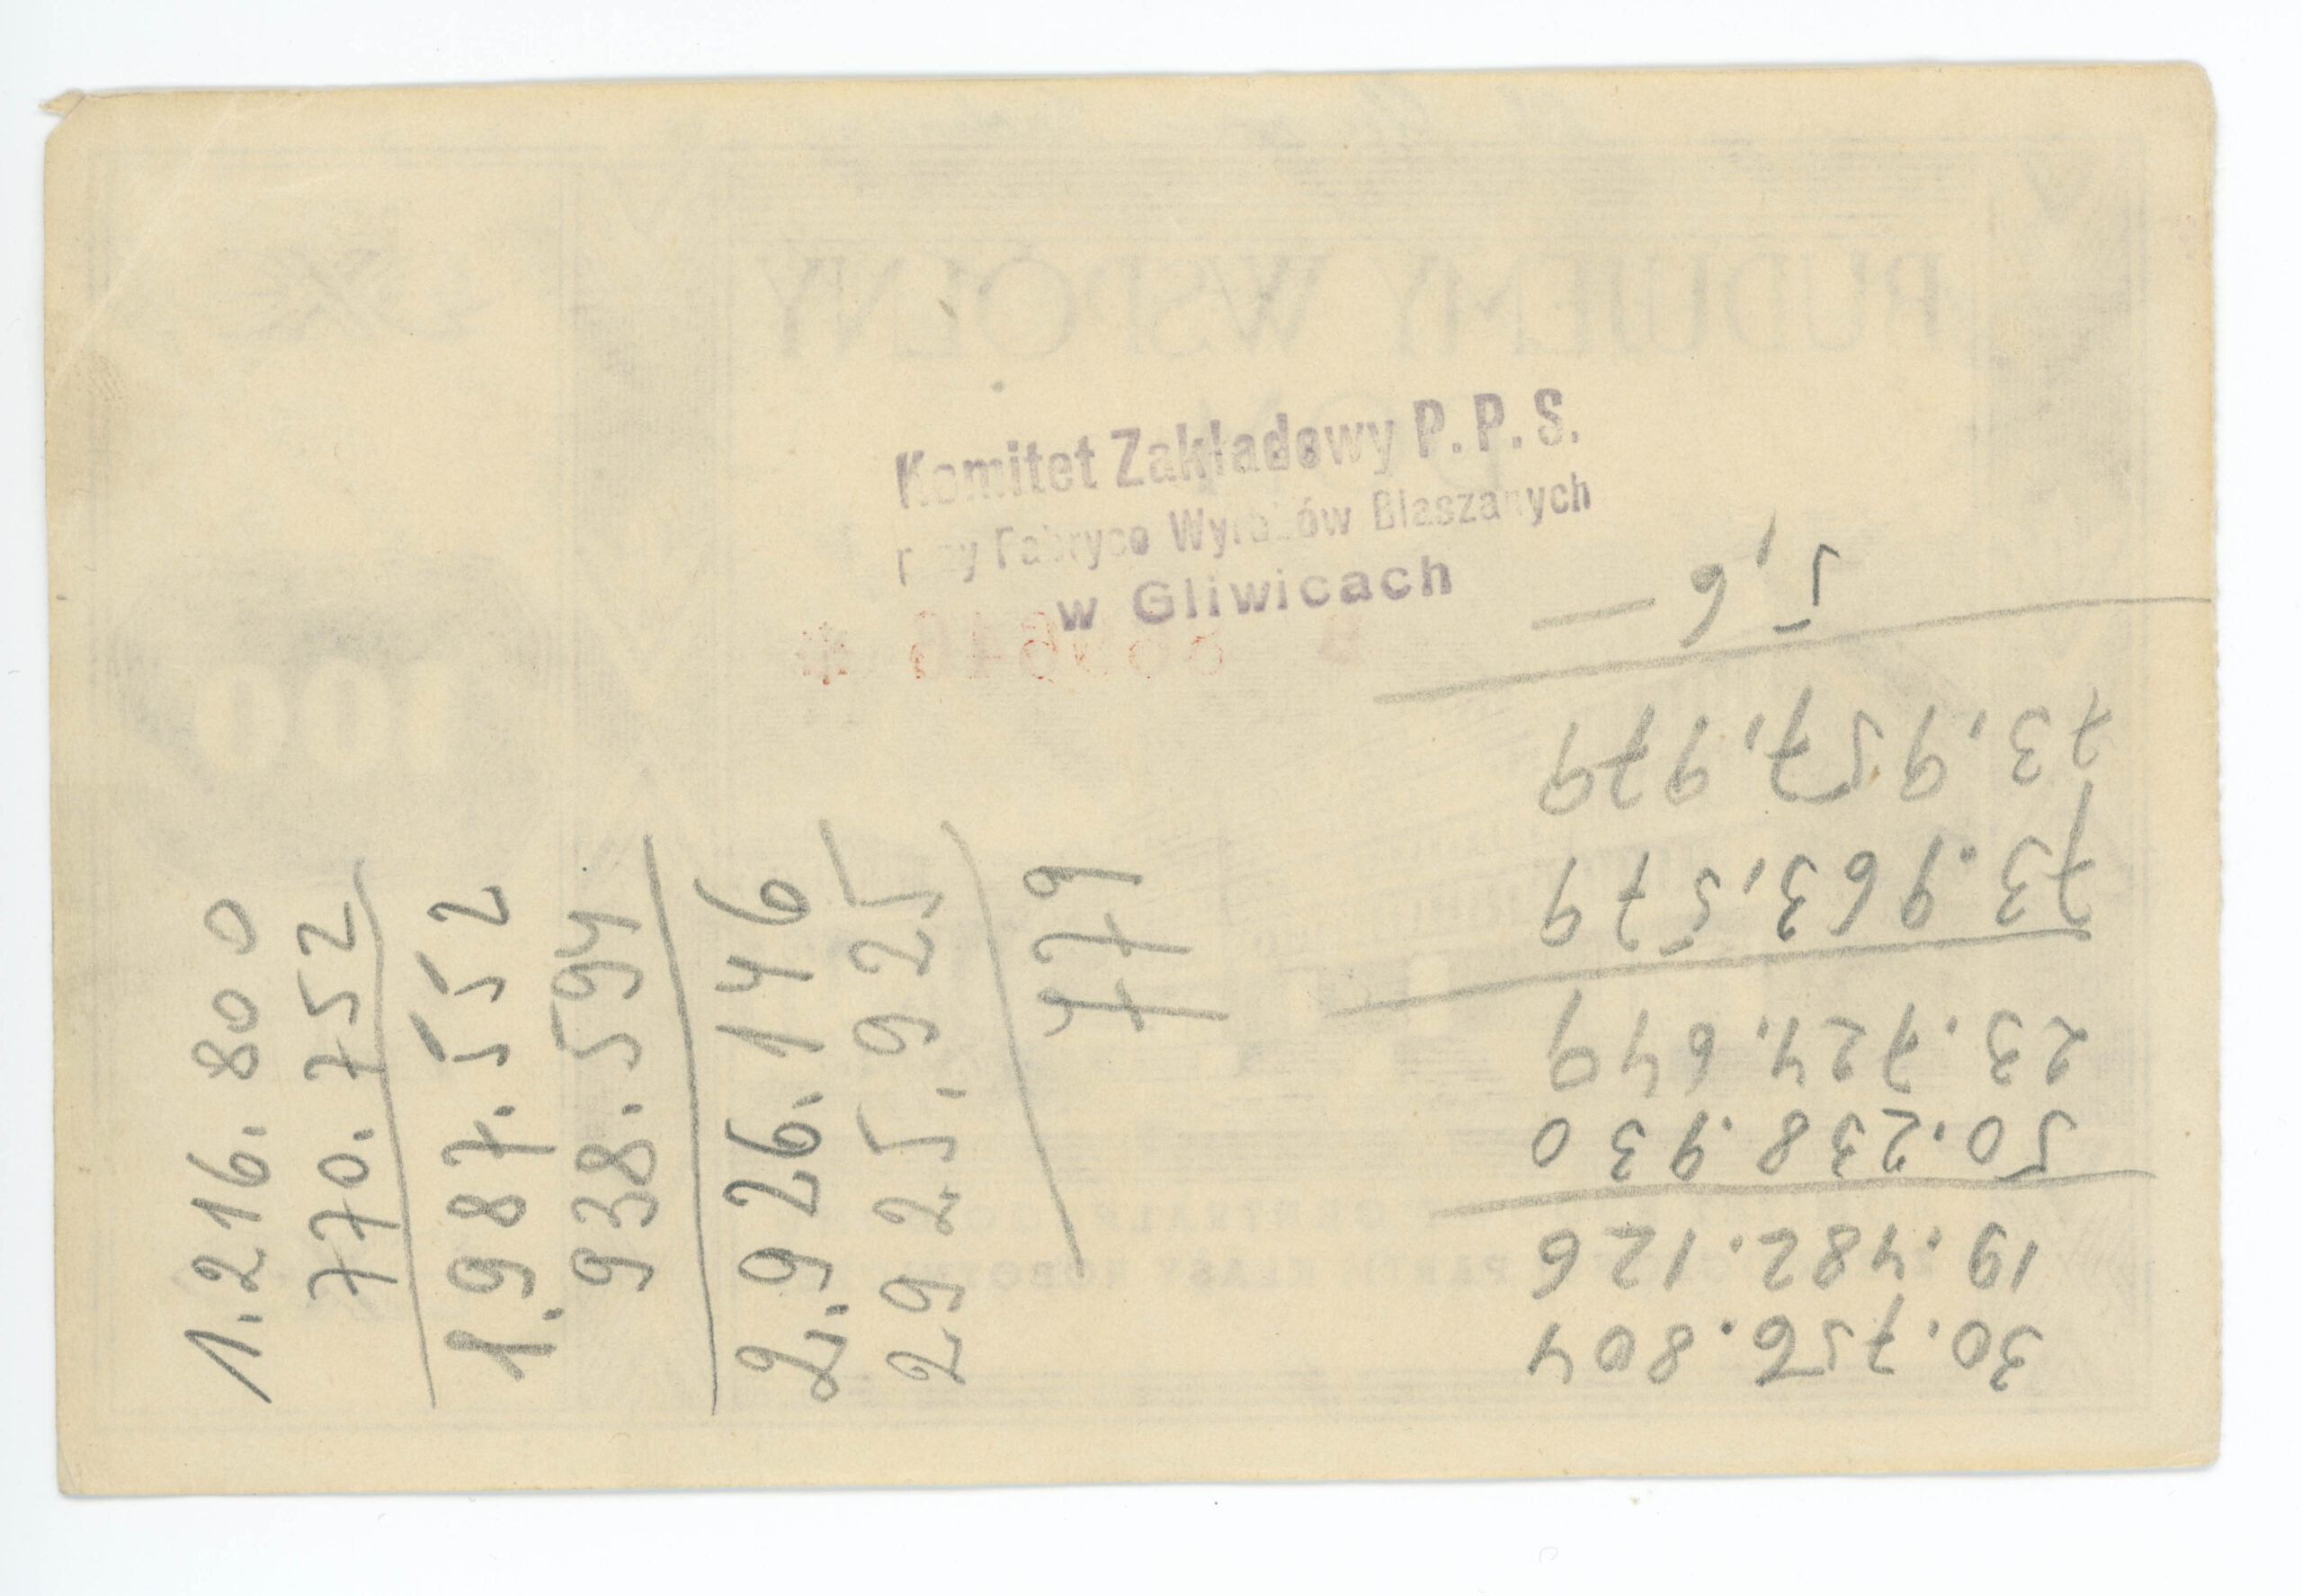 BUDUJEMY WSPÓLNY
DOM
100
Komitet Zakładowy P.P.S.
przy Fabryce Wyrobów Blaszanych
w Gliwicach
1.216.800
770.752
1.987.552
938.594
2.926.146
2925.925
779
30.756.804
19.482.126
50.238.930
23.724.649
73.963,579
73,957,979
5,6 —